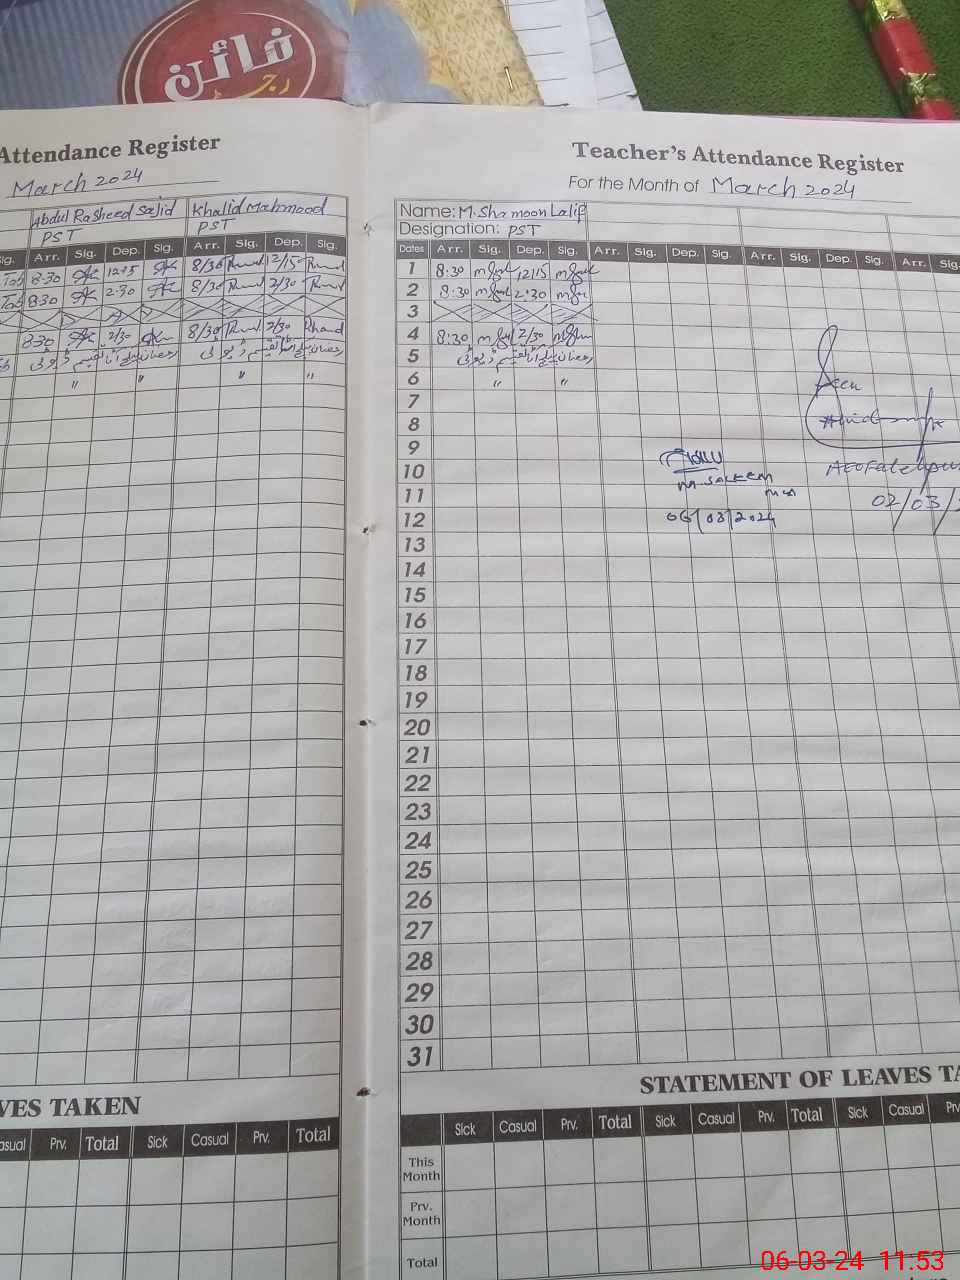 فائن
رجسٹر
Attendance Register
March 2024
Abdul Rasheed Sajid Khalid Mahmood
PST PST
Sig. Arr. Sig. Dep. Sig. Arr. Sig. Dep. Sig.
8-30 12-15 8/30 12/15
8:30 2-30 8/30 2/30
830 2/30 8/30 2/30
" " " "
VES TAKEN
Casual Prv. Total Sick Casual Prv. Total
Teacher's Attendance Register
For the Month of March 2024
Name: M. Shamoon Latif
Designation: PST
Dates Arr. Sig. Dep. Sig. Arr. Sig. Dep. Sig. Arr. Sig. Dep. Sig. Arr. Sig.
1 8:30 12/15
2 8:30 2:30
3
4 8:30 2/30
5
6 " "
7
8
9
10
11
12
13
14
15
16
17
18
19
20
21
22
23
24
25
26
27
28
29
30
31
Seen
AEO Fatehpur
02/03/
M. Saleem
06/03/2024
STATEMENT OF LEAVES TA
Sick Casual Prv. Total Sick Casual Prv. Total Sick Casual Prv
This Month
Prv. Month
Total
06-03-24 11:53